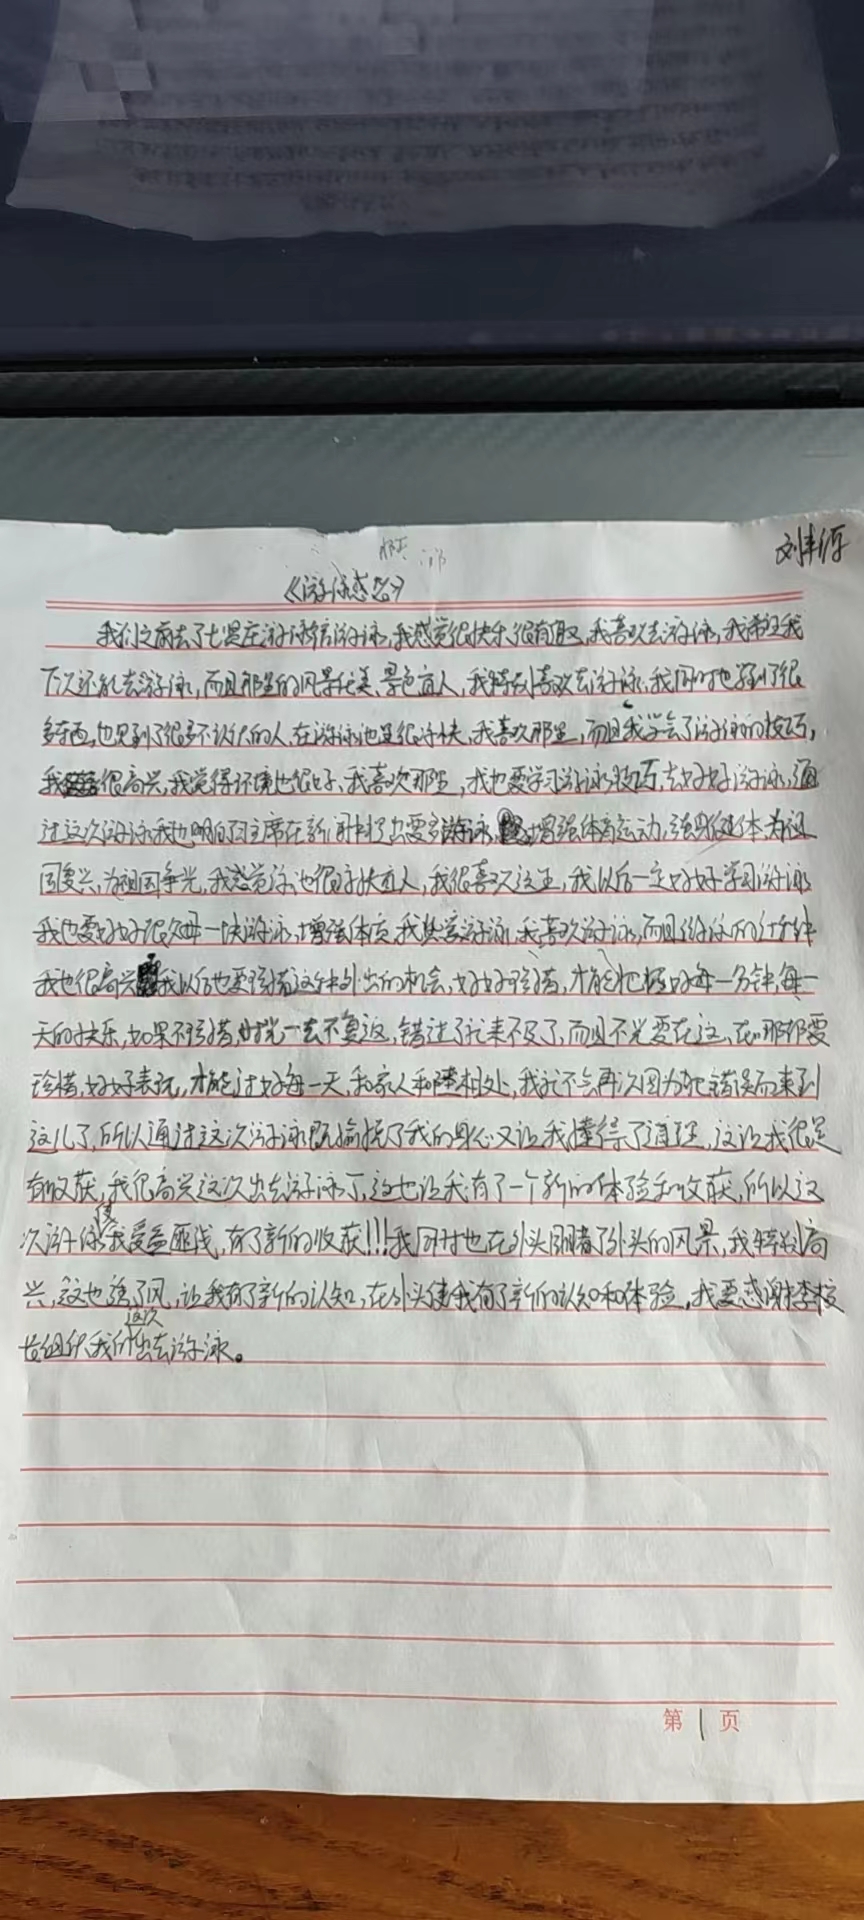 刘丰源
《游泳感想》
我们之前去了七贤庄游泳馆游泳,我感觉很快乐很有趣,我喜欢去游泳,我希望我
下次还能去游泳,而且那里的风景优美、景色宜人,我特别喜欢去游泳,我同时也学到了很
多东西,也见到了很多不认识的人,在游泳池里很凉快,我喜欢那里,而且我学会了游泳的技巧,
我很高兴,我觉得环境也很好,我喜欢那里,我也要学习游泳技巧,去好好游泳,通
过这次游泳我也明白了主席在新闻中提出要多游泳,增强体育运动,强身健体,为祖
国复兴,为祖国争光,我感觉泳池很凉快宜人,我很喜欢这里,我以后一定好好学习游泳
我也要好好很久每一块游泳,增强体质,我热爱游泳,我喜欢游泳,而且游泳的过程中
我也很高兴我以后也要珍惜这种外出的机会,好好珍惜,才能把握好每一分钟,每一
天的快乐,如果不珍惜,时光一去不复返,错过了就来不及了,而且不光要在这,在哪都要
珍惜,好好表现,才能过好每一天,和家人和睦相处,我就不会再次因为犯错误而来到
这儿了,所以通过这次游泳既愉悦了我的身心又让我懂得了道理,这让我很是
有收获,我很高兴这次出去游泳了,这也让我有了一个新的体验和收获,所以这
次游泳使我受益匪浅,有了新的收获!!!我同时也在外头围着了外头的风景,我特别高
兴,这也透了风,让我有了新的认知,在外头使我有了新的认知和体验,我要感谢李校
长组织我们这次出去游泳。
第1页